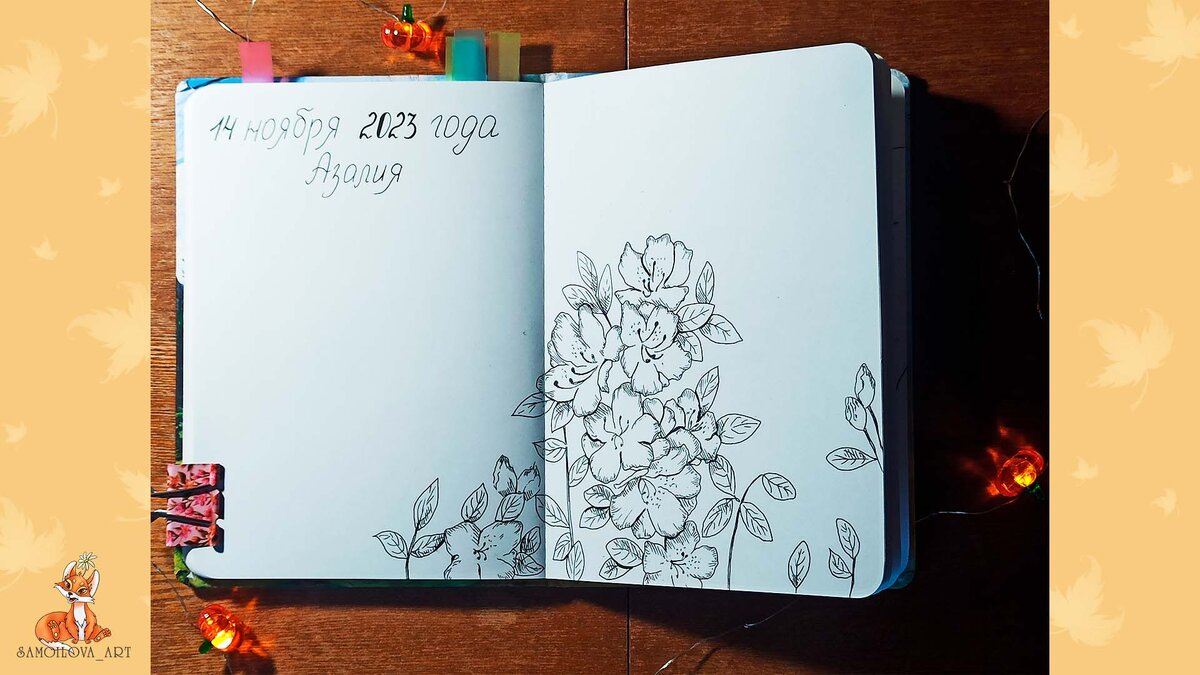 14 ноября 2023 года
Азалия
SAMOILOVA_ART